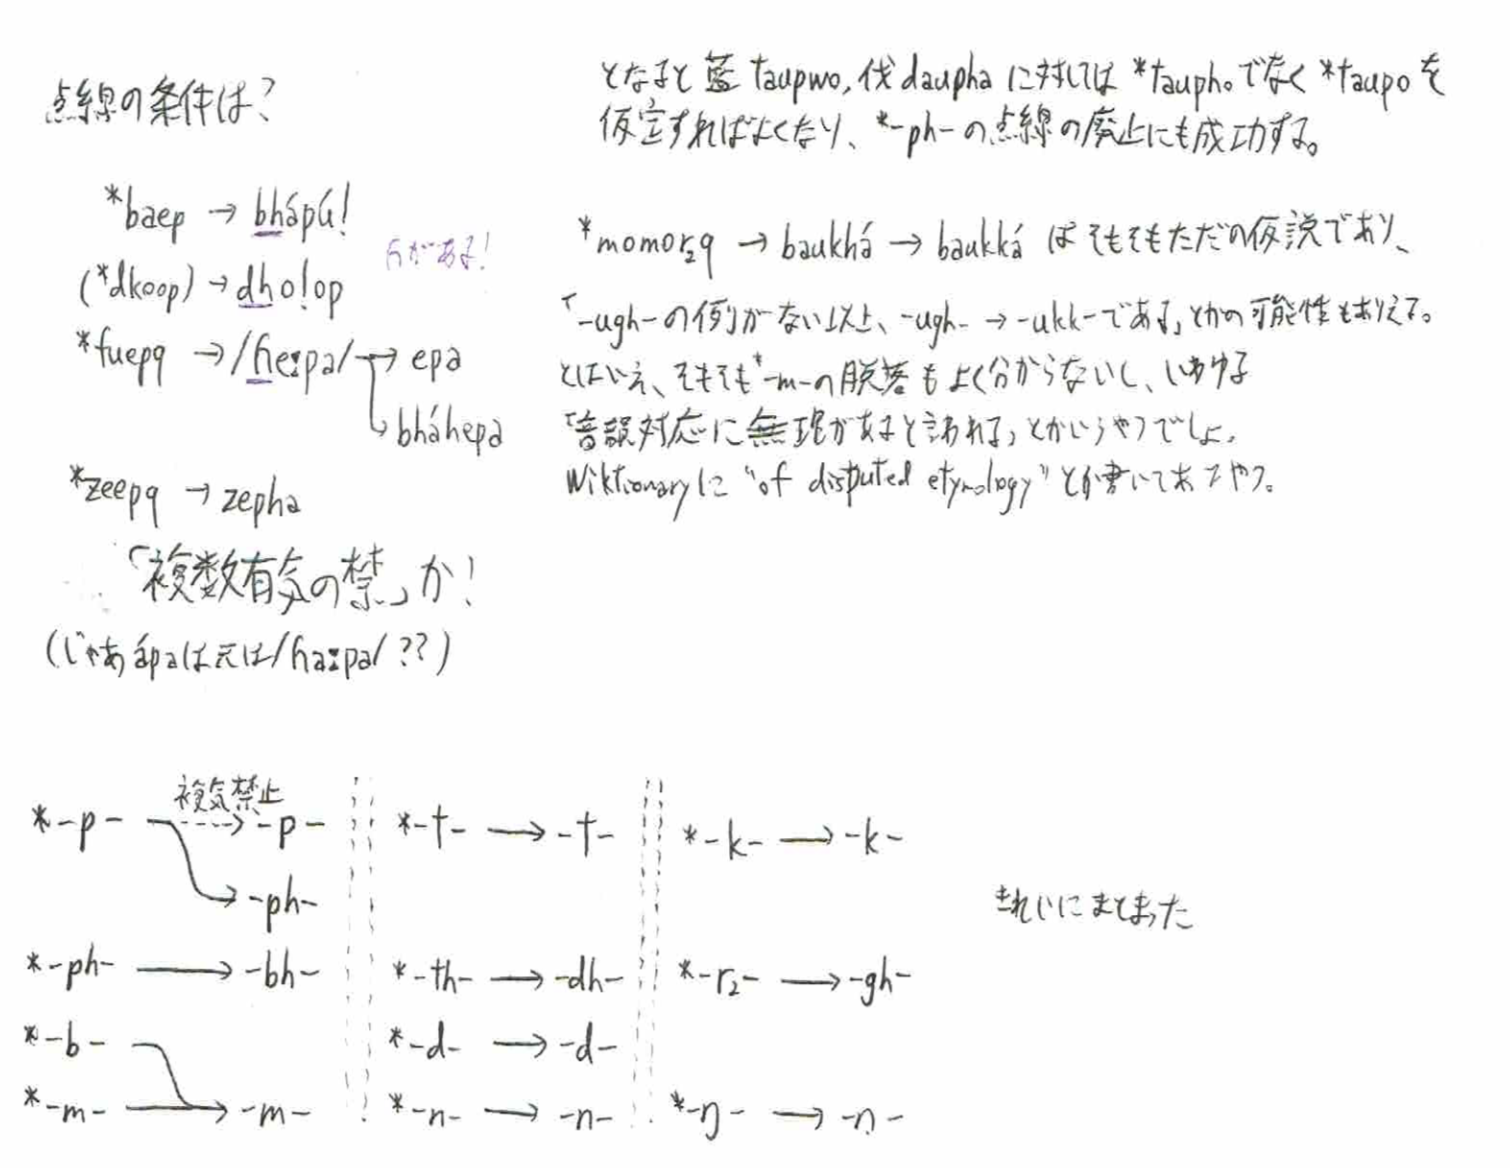 点線の条件は?
*baep → bhápú!
(*dkoop) → dho!op
ɦがある!
*fuepq → /ɦeːpa/ → epa
→ bháhepa
*zeepq → zepha
「複数有気の禁」か!
(じゃあápaは元は/ɦaːpa/??)
となると藍taupwo, 伐daupha に対しては *taupho でなく *taupo を
仮定すればよくなり、*-ph- の点線の廃止にも成功する。
*momor₂q → baukhá → baukká はそもそもただの仮説であり、
「-ugh-の例がない以上、-ugh- → -ukk-である」とかの可能性もありえる。
とはいえ、そもそも*-m-の脱落もよく分からないし、いわゆる
「音韻対応に無理があると言われる」とかいうやつでしょ。
Wiktionaryに "of disputed etymology" とか書いてあるやつ。
複気禁止
*-p- → -p-
→ -ph-
*-ph- → -bh-
*-b-
*-m- → -m-
*-t- → -t-
*-th- → -dh-
*-d- → -d-
*-n- → -n-
*-k- → -k-
*-r₂- → -gh-
*-ŋ- → -n-
きれいにまとまった